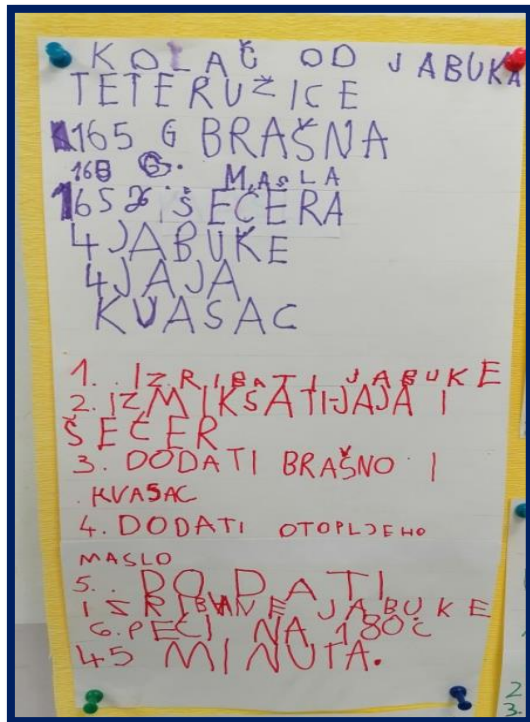 KOLAČ OD JABUKA
TETE RUŽICE
165 G BRAŠNA
165 G. MASLA
165 G ŠEĆERA
4 JABUKE
4 JAJA
KVASAC
1. IZRIBATI JABUKE
2. IZMIKSATI JAJA I
ŠEĆER
3. DODATI BRAŠNO I
KVASAC
4. DODATI OTOPLJENO
MASLO
5. DODATI
IZRIBANE JABUKE
6. PEĆI NA 180C
45 MINUTA.
2
3.